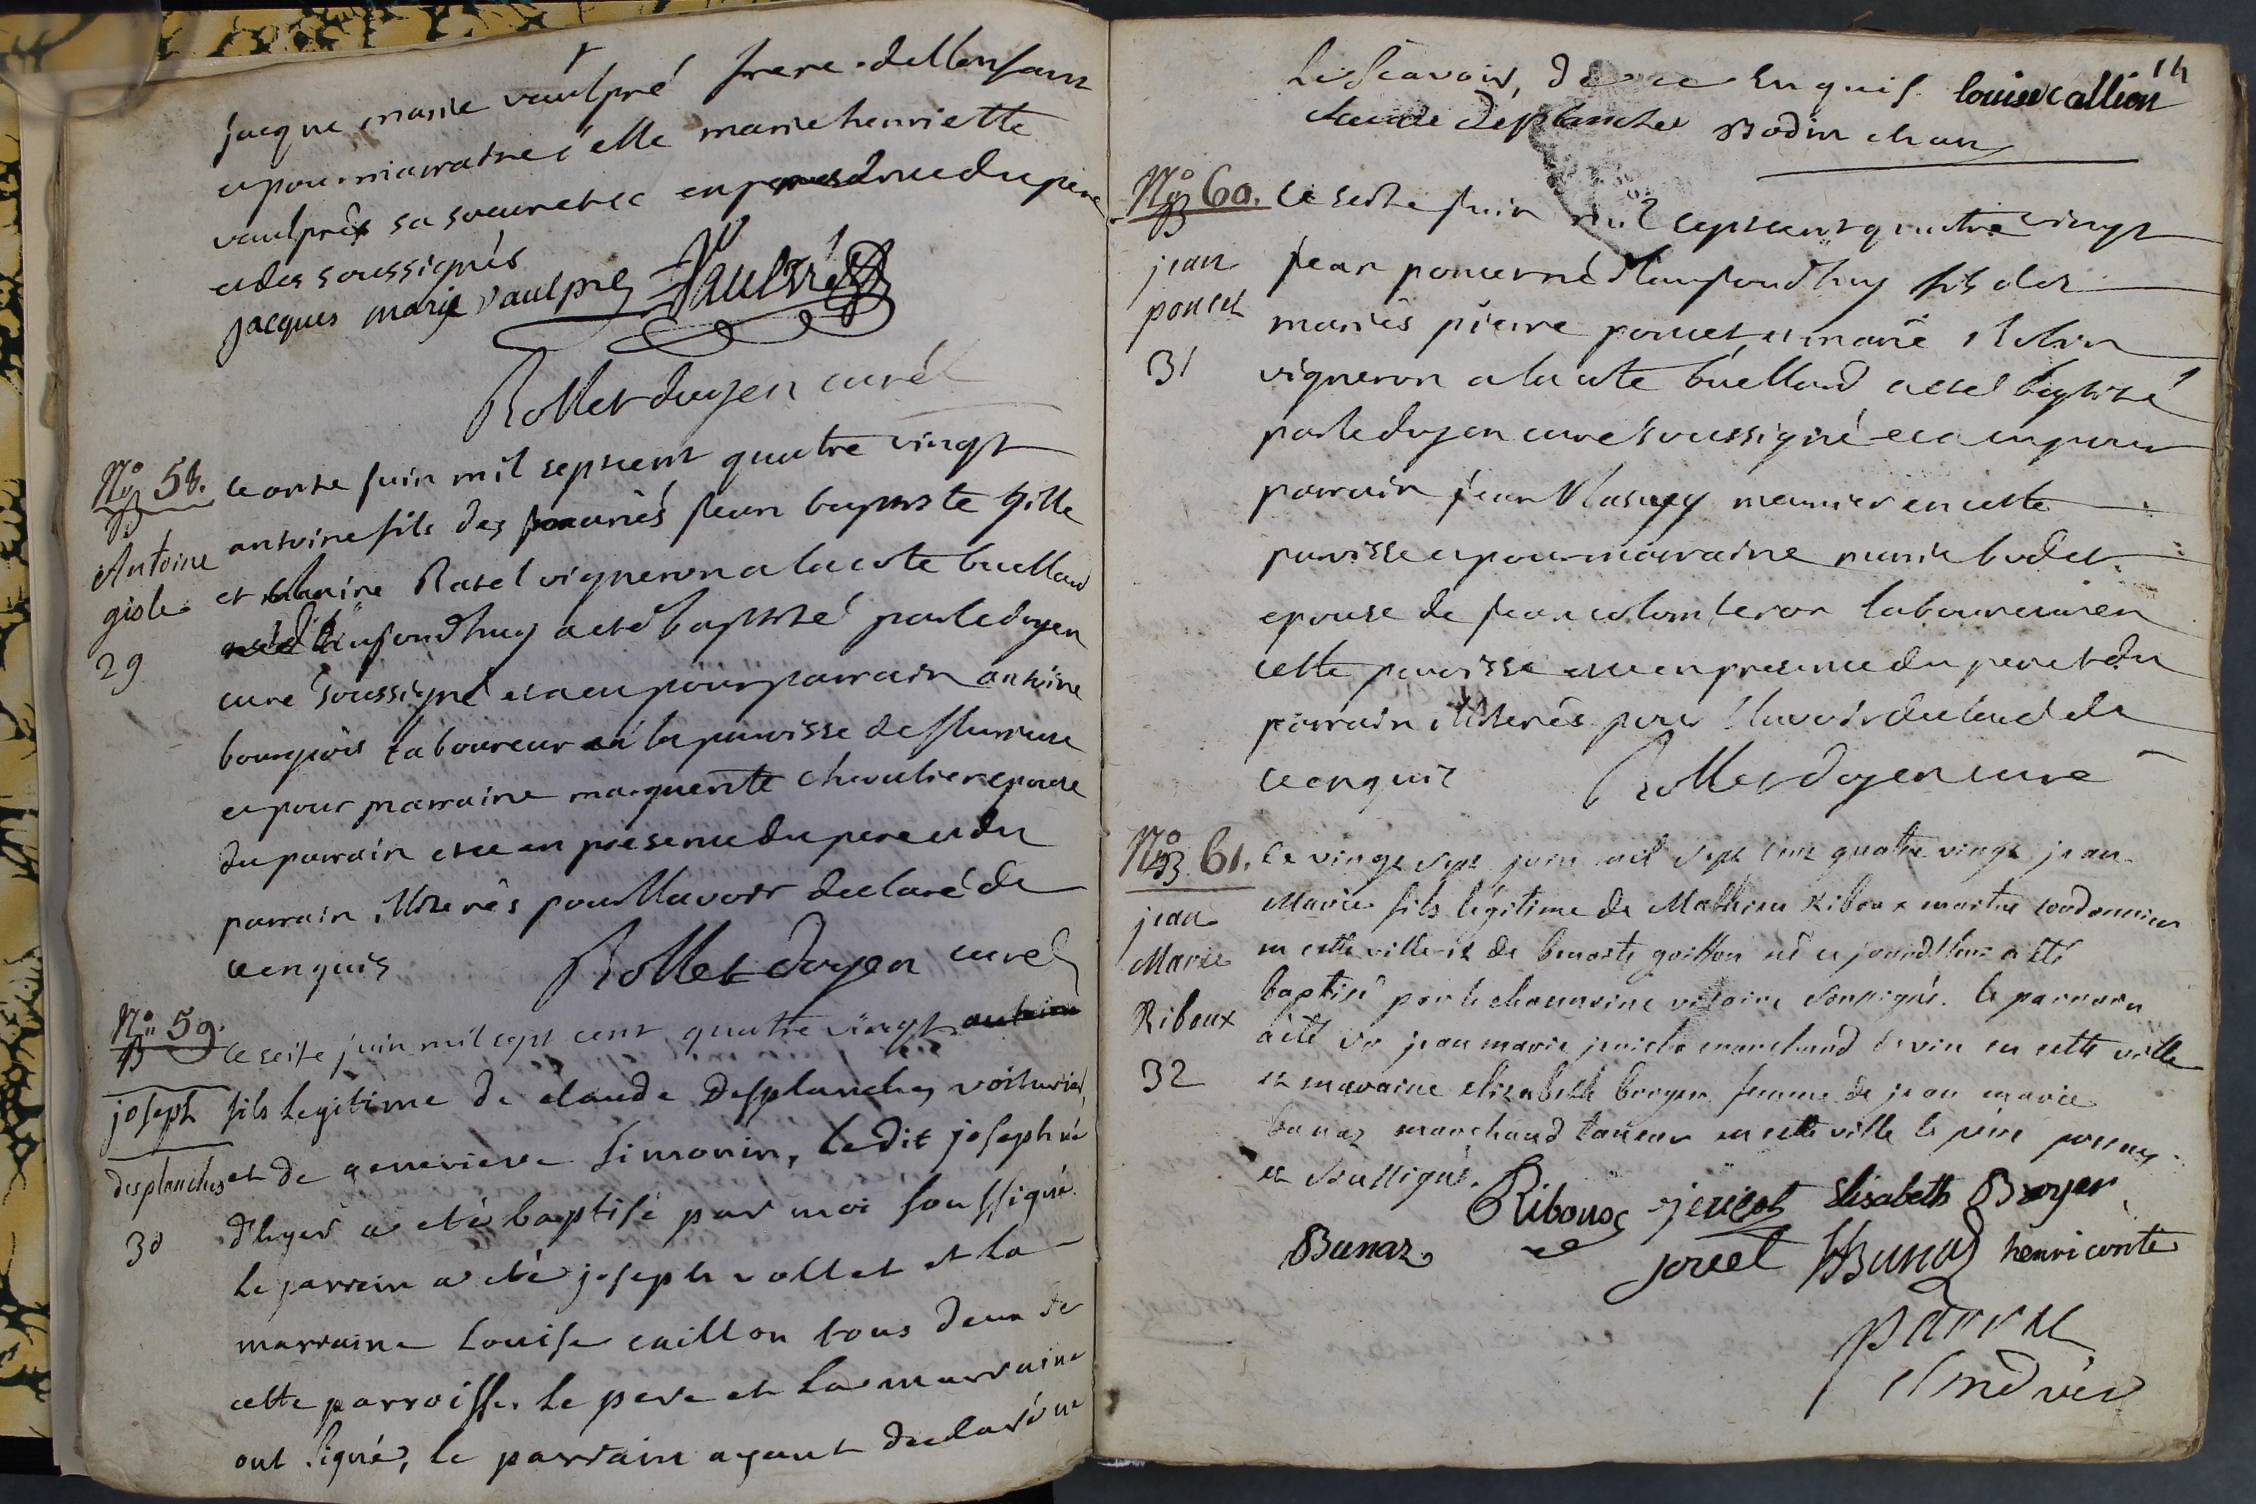 jacque marie vaulpré frere dellenfant
et pour marraine delle marie henriette
vaulpré sa soeur et ce en presence du pere
et des soussignés
jacques marie vaulpré Vaulpré
Rollet doyen curé
No 58. ce onze juin mil sept cent quatre vingt
B
Antoine
gisle
29
antoine fils des mariés jean baptiste gille
et Ratel vigneron a la cote buelland
né aujourdhuy a eté baptisé par le doyen
curé soussigné et a eu pour parrain antoine
bourgeois laboureur a la paroisse de flurieux
et pour marraine marguerite chevalier epouse
du parrain et ce en presence du pere et du
parrain illiterés pour llavoir declaré de
ce enquis Rollet doyen curé
No 59. ce seize juin mil sept cent quatre vingt
B
joseph
desplanches
30
fils legitime de claude Desplanches voiturier
et de genevieve Simonin, ledit joseph né
d'hyer a eté baptisé par moi soussigné
le parrein a eté joseph vollet et la
marraine Louise caillon tous deux de
cette parroisse. le pere et la marraine
ont signé, le parrain ayant declaré ne
14
le sçavoir, de ce enquis louise callion
claude desplanches Bodin chan
No 60. ce seize juin mil sept cent quatre vingt
B
jean
poncet
31
jean poncet né d'aujourdhuy fils des
mariés pierre poncet et marie
vigneron a la cote buelland a eté baptisé
par le doyen curé soussigné et a eu pour
parrain jean meunier en cette
paroisse et pour marraine marie budet
epouse de jean colomberon laboureur en
cette paroisse et ce en presence du pere et du
parrain illiterés pour llavoir declaré de
ce enquis Rollet doyen curé
No 61. Le vingt sept juin mil sept cent quatre vingt jean
B
jean
Marie
Riboux
32
Marie fils légitime de Mathieu Riboux maitre cordonnier
en cette ville et de benoite goiffon né ce jourd'hui a été
baptisé par le chanoine vicaire soussigné. le parrain
a été sr jean marie marchand de vin en cette ville
et maraine elizabeth broyer femme de jean marie
bunaz marchand taneur en cette ville le père present
et soussigné.
Riboux Elisabeth Broyer
Bunaz joret Bunaz henri conte
parrat